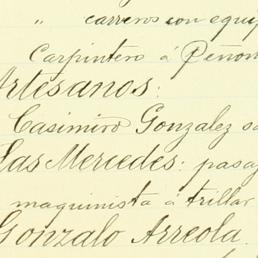 " carreros con equip
Carpintero á Peñon
Artesanos:
Casimiro Gonzalez sa
Las Mercedes: pasaj
maquinista á trillar
Gonzalo Arreola.